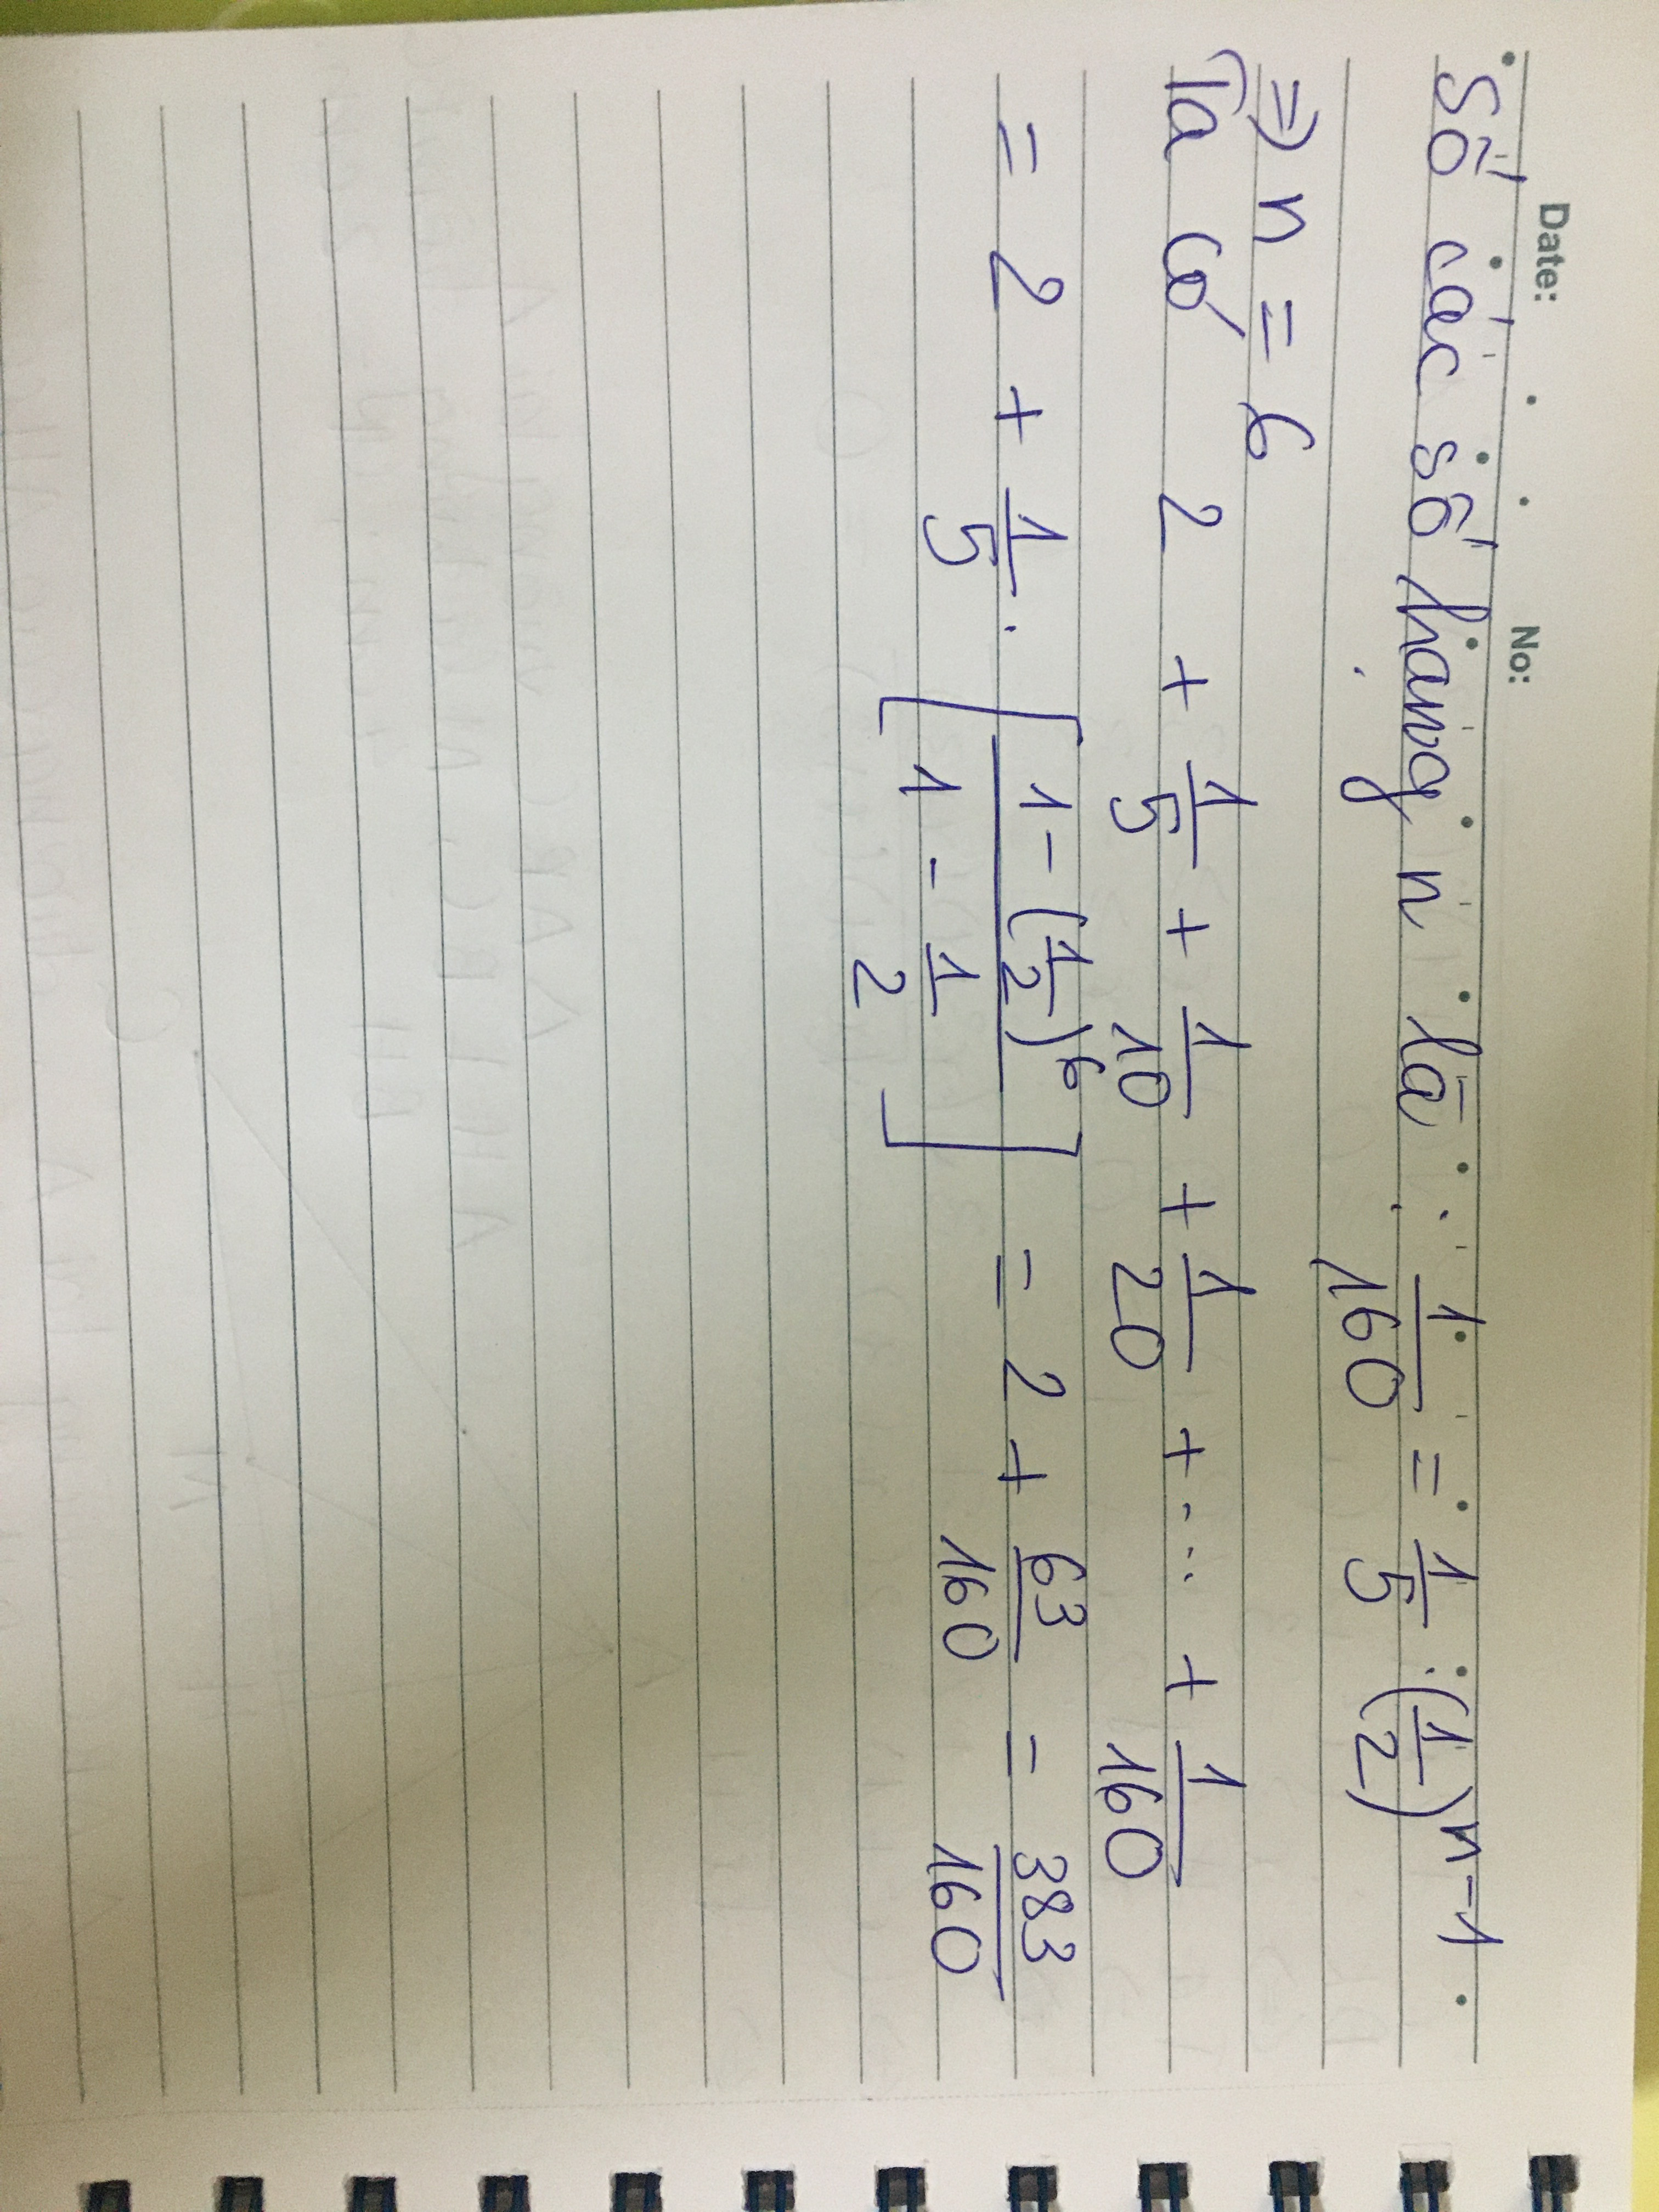 Date: No:
Số các số hạng n là: 1/160 = 1/5 . (1/2)^n-1
=> n = 6
Ta có 2 + 1/5 + 1/10 + 1/20 + ... + 1/160
= 2 + 1/5 . [ (1 - (1/2)^6) / (1 - 1/2) ] = 2 + 63/160 = 383/160